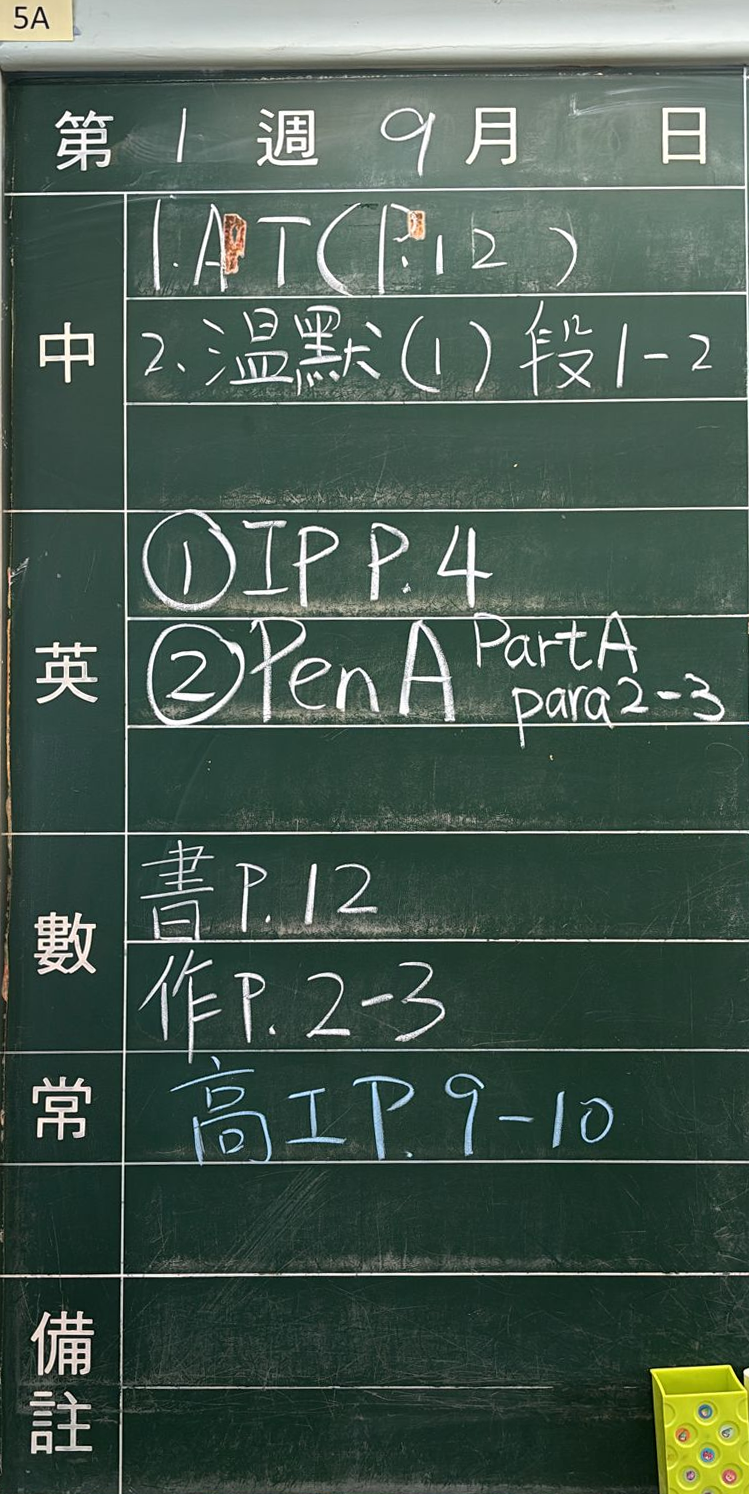 5A
第 1 週 9 月 日
中
1. APT (P.12)
2. 温默(1) 段1-2
英
① IP P.4
② Pen A Part A
para 2-3
數
書 P.12
作 P.2-3
常
高 I P.9-10
備註